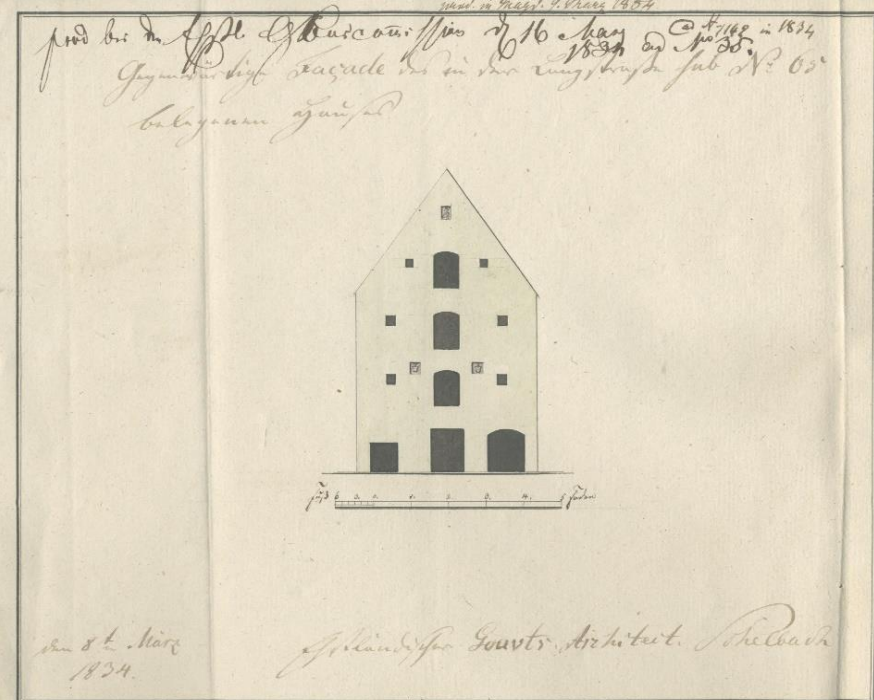 prod. in Magt. 9. März 1834
prod bei der Ehstl. Bau-Commission d 16 May 1834 ad No 35.
in 1834
Gegenwärtige Façade des in der Langstraße sub No. 65
belegenen Hauses
Fuß 6 3 0 1. 2. 3. 4. 5 Faden
den 8t März
1834.
Ehstländischer Gouvts. Architect. Schellbach